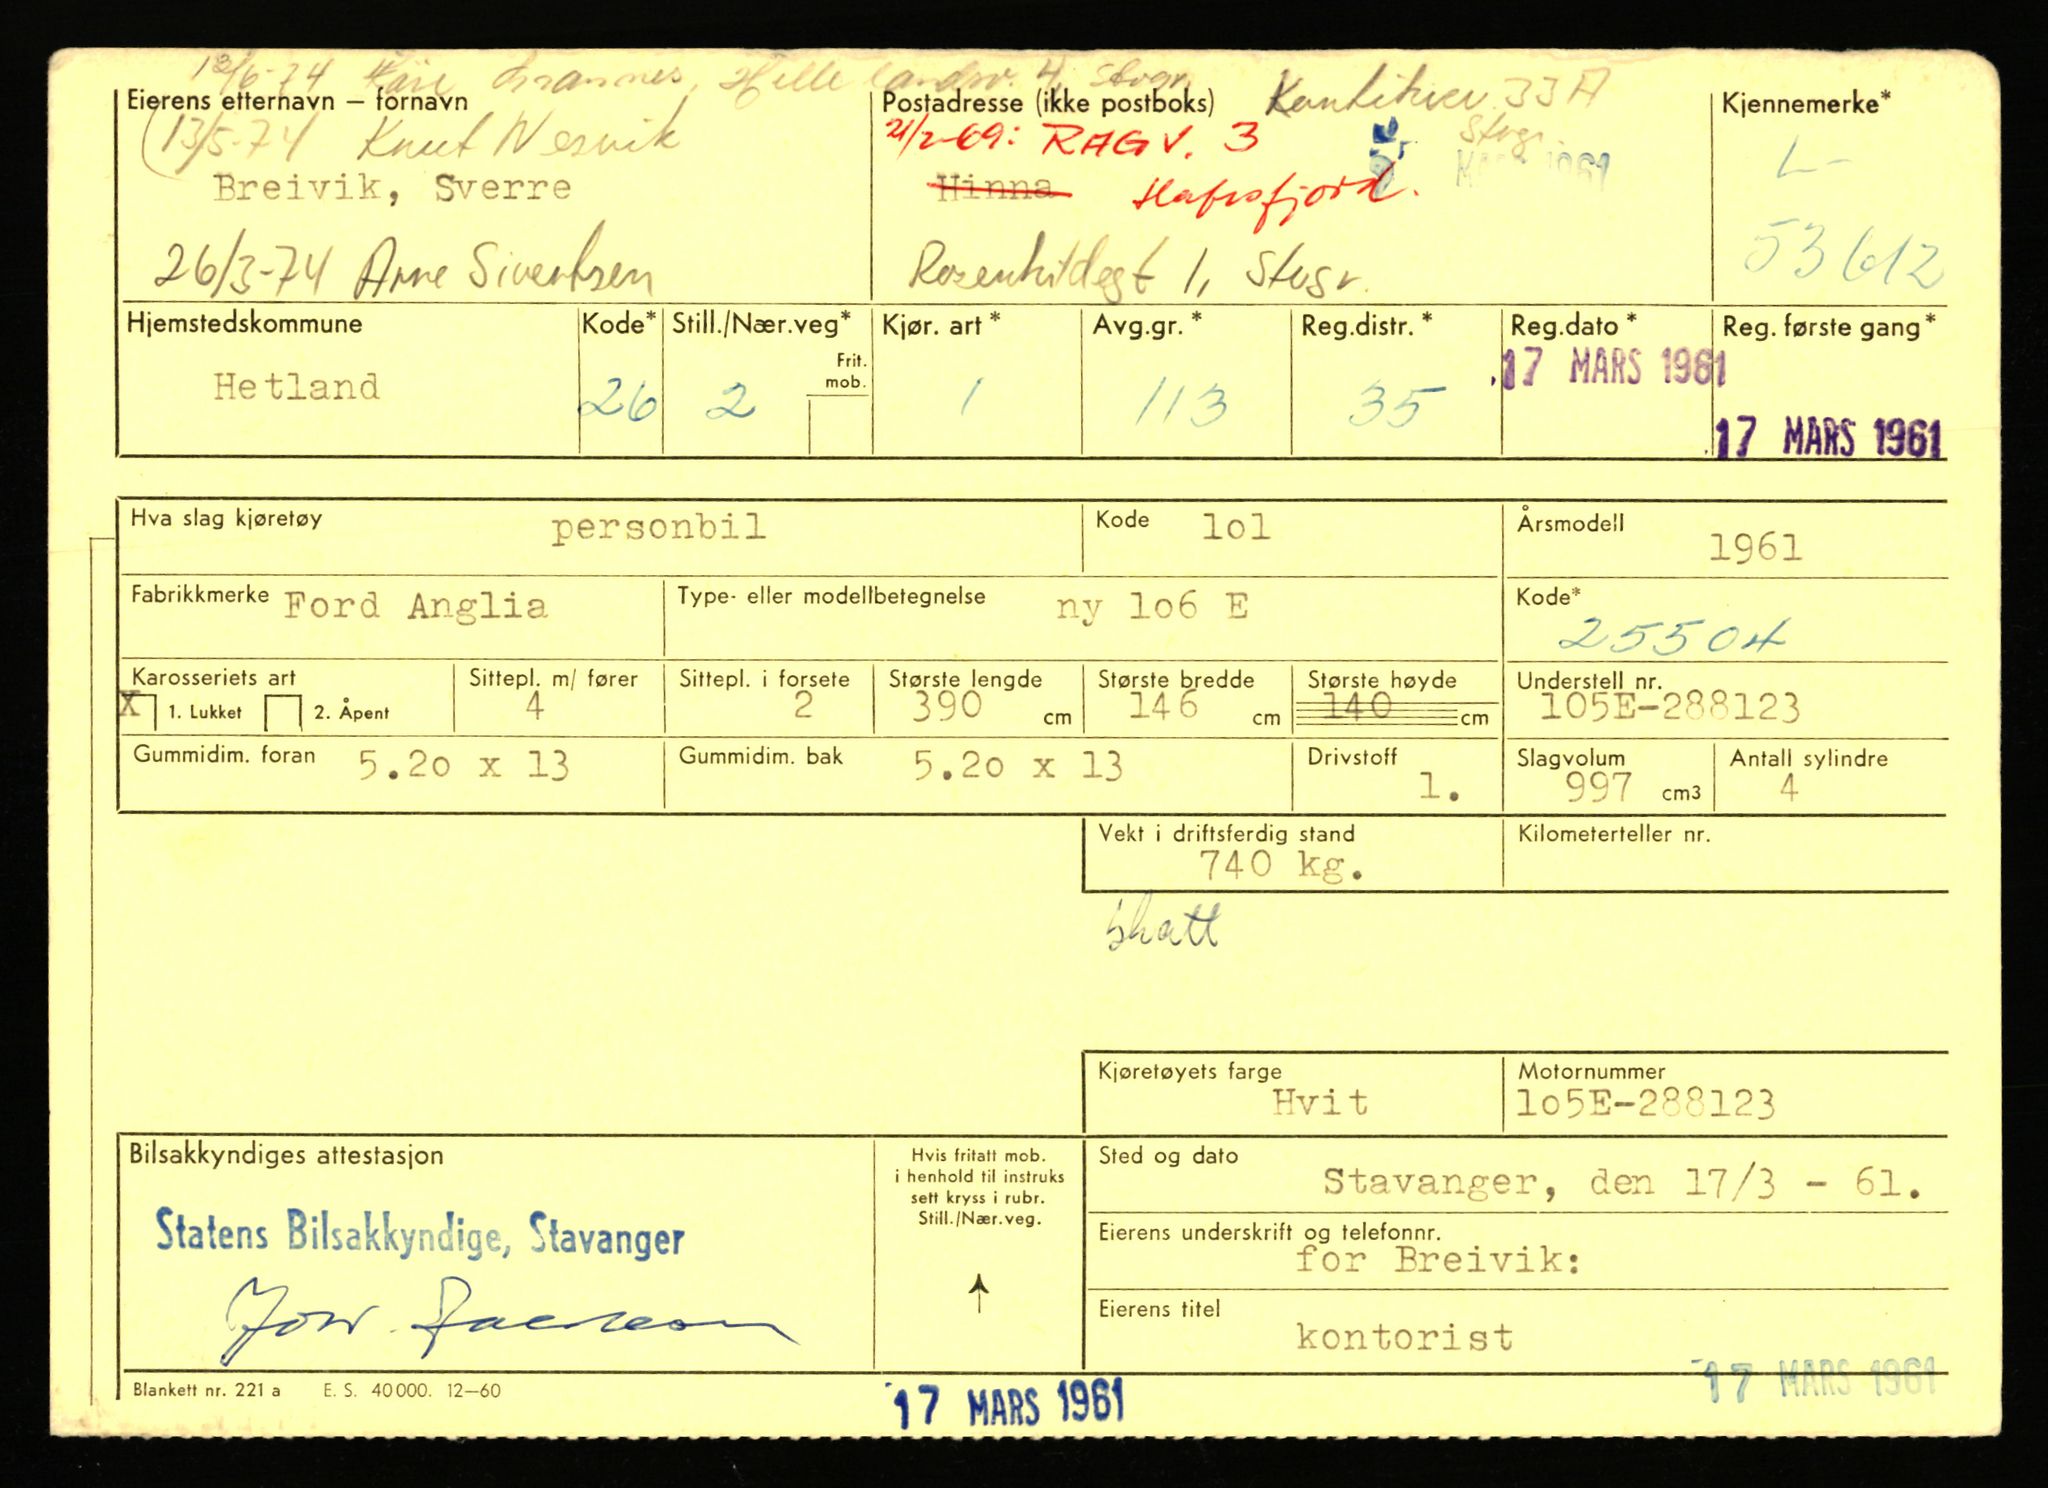 12/6-74 Kåre Grannes, Hillelandsv. 4, Stvgr.
Eierens etternavn – fornavn
Postadresse (ikke postboks)
33 A
Kjennemerke*
13/5-74 Knut Nesvik
21/2-69: RAGV. 3
Stvgr.
1961
L-
Breivik, Sverre
Hinna
Hafrsfjord.
53612
26/3-74 Arne Sivertsen
1, Stvgr.
Hjemstedskommune
Kode*
Still./Nær.veg*
Kjør. art *
Avg.gr. *
Reg.distr. *
Reg.dato *
Reg. første gang *
Frit. mob.
17 MARS 1961
Hetland
26
2
1
113
35
17 MARS 1961
Hva slag kjøretøy personbil
Kode lol
Årsmodell
1961
Fabrikkmerke Ford Anglia
Type- eller modellbetegnelse ny lo6 E
Kode*
25504
Karosseriets art
Sittepl. m/ fører
Sittepl. i forsete
Største lengde
Største bredde
Største høyde
Understell nr.
X 1. Lukket 2. Åpent
4
2
390 cm
146 cm
140 cm
105E-288123
Gummidim. foran 5.20 x 13
Gummidim. bak 5.20 x 13
Drivstoff
1.
Slagvolum
997 cm3
Antall sylindre
4
Vekt i driftsferdig stand
740 kg.
Kilometerteller nr.
skatt
Kjøretøyets farge
Hvit
Motornummer
lo5E-288123
Bilsakkyndiges attestasjon
Hvis fritatt mob.
i henhold til instruks
sett kryss i rubr.
Still./Nær.veg.
Sted og dato
Stavanger, den 17/3 - 61.
Statens Bilsakkyndige, Stavanger
Eierens underskrift og telefonnr.
for Breivik:
Eierens titel
kontorist
Blankett nr. 221 a E. S. 40 000. 12—60
17 MARS 1961
17 MARS 1961